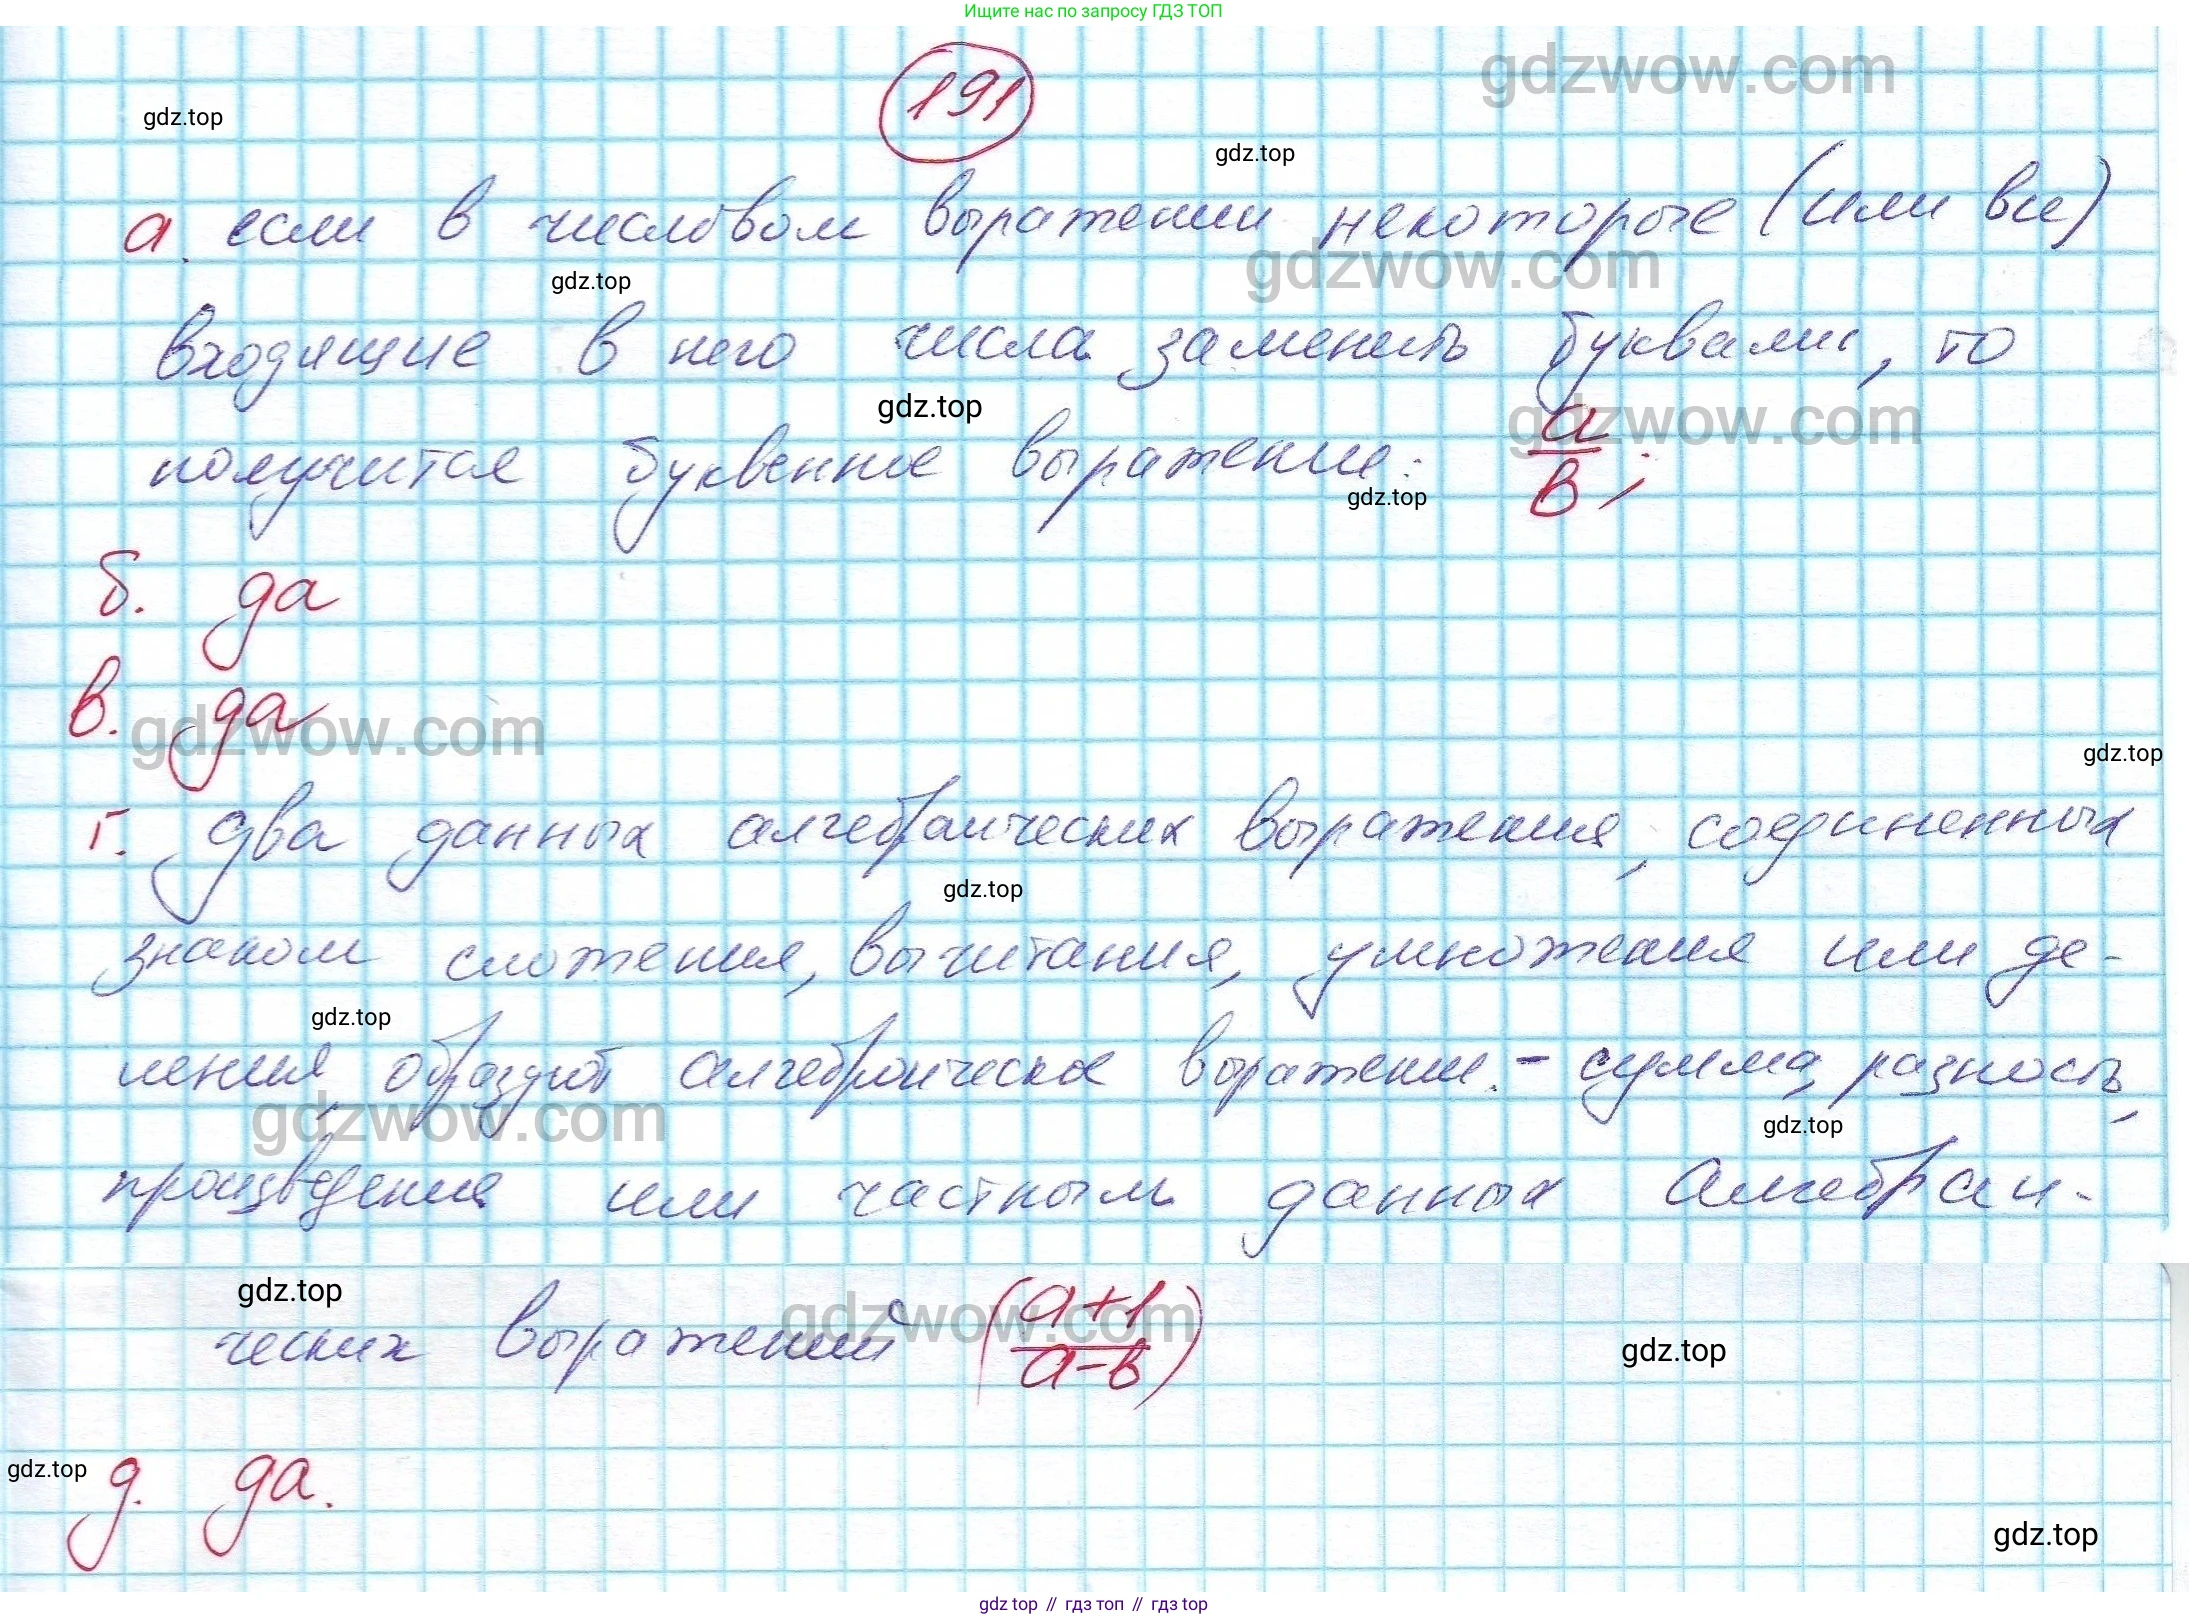 Ищите нас по запросу ГДЗ ТОП
191
gdzwow.com
gdz.top
gdz.top
а. если в числовом выражении некоторые (или все)
gdzwow.com
gdz.top
входящие в него числа заменить буквами, то
gdz.top
gdzwow.com
получится буквенное выражение: a/b;
gdz.top
б. да
в. да
gdzwow.com
gdz.top
г. два данных алгебраических выражения, соединенных
gdz.top
знаком сложения, вычитания, умножения или де-
gdz.top
ления, образуют алгебраическое выражени. - сумма, разность,
gdzwow.com
gdz.top
произведения или частным данных алгебраи-
gdz.top
gdzwow.com
ческих выражений (a+1/a-b)
gdz.top
gdz.top
д. да.
gdz.top
gdz top // гдз топ // gdz top